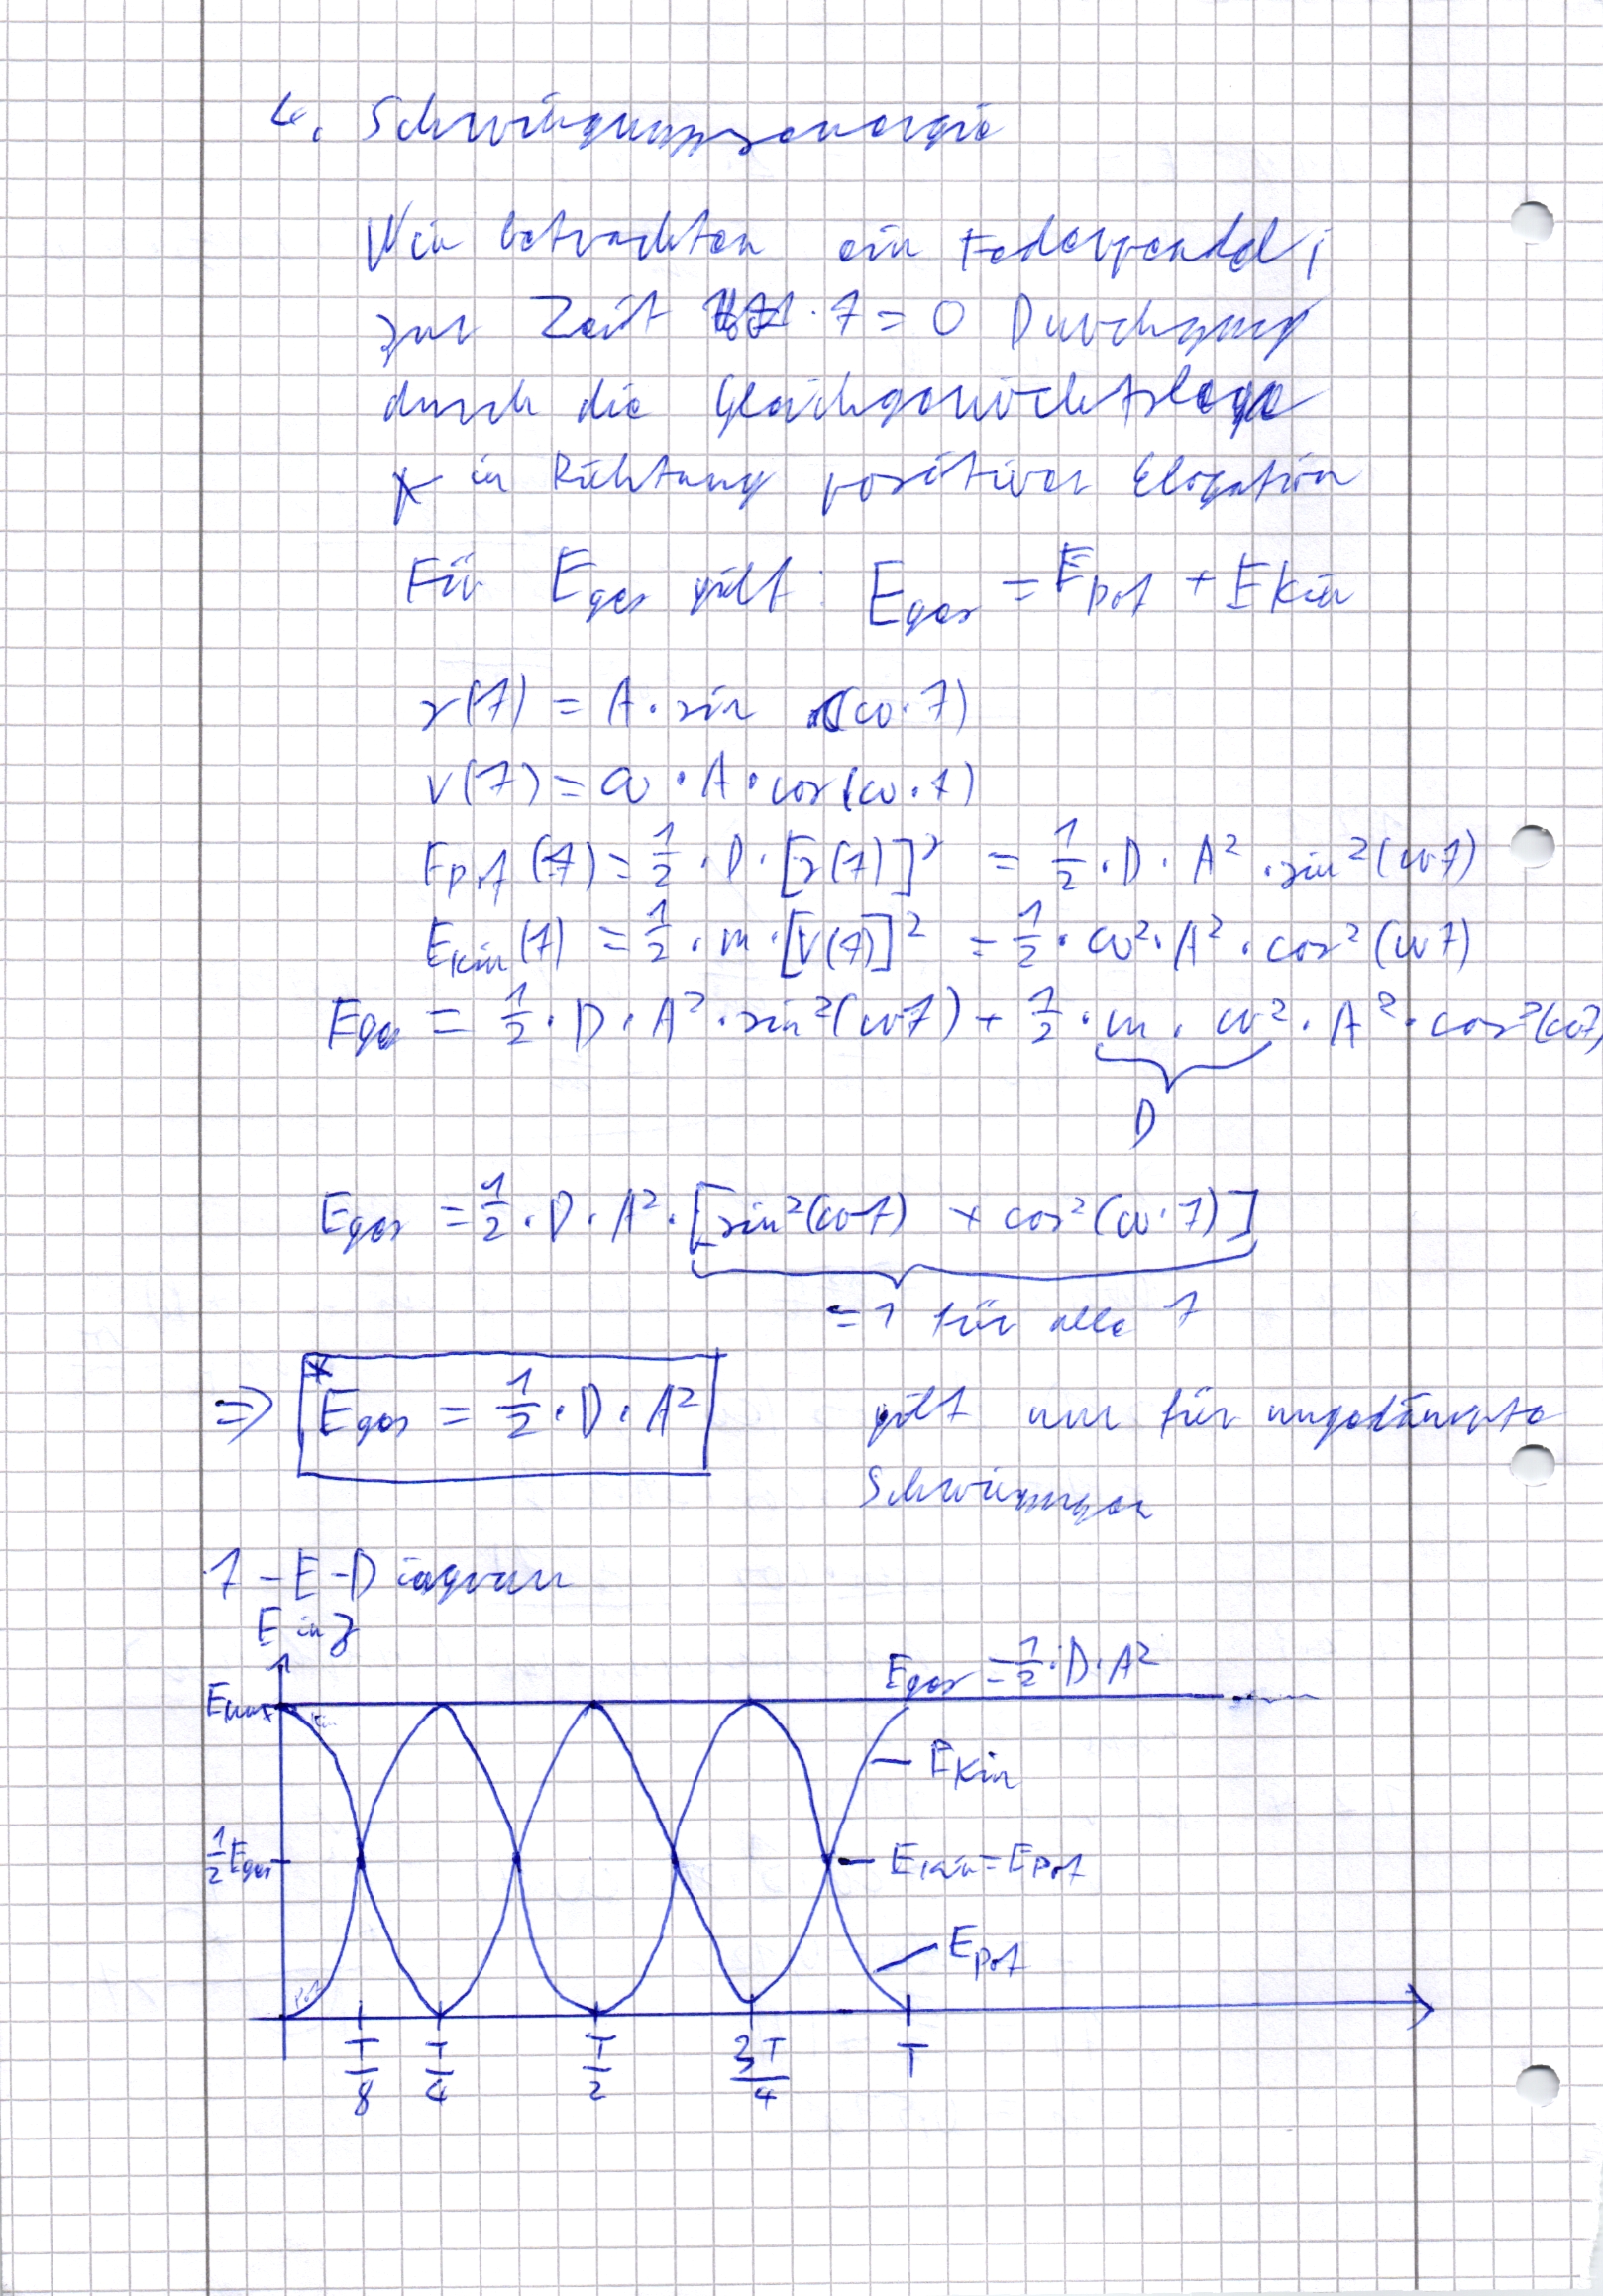 4. Schwingungsenergie
Wir betrachten ein Federpendel;
zur Zeit t = 0 Durchgang
durch die Gleichgewichtslage
in Richtung positiver Elogation
Für Eges gilt: Eges = Epot + Ekin
s(t) = A · sin (ω · t)
v(t) = ω · A · cos(ω · t)
Epot (t) = 1/2 · D · [s(t)]² = 1/2 · D · A² · sin²(ωt)
Ekin (t) = 1/2 · m · [v(t)]² = 1/2 · ω² · A² · cos²(ωt)
Eges = 1/2 · D · A² · sin²(ωt) + 1/2 · m · ω² · A² · cos²(ωt)
D
Eges = 1/2 · D · A² · [sin²(ω·t) + cos²(ω·t)]
= 1 für alle t
⇒ * Eges = 1/2 · D · A² gilt nur für ungedämpfte
Schwingungen
t-E-Diagramm
E in J
Eges = 1/2 · D · A²
Emax
Ekin
1/2 Eges
Ekin = Epot
Epot
pot
T/8 T/4 T/2 3T/4 T